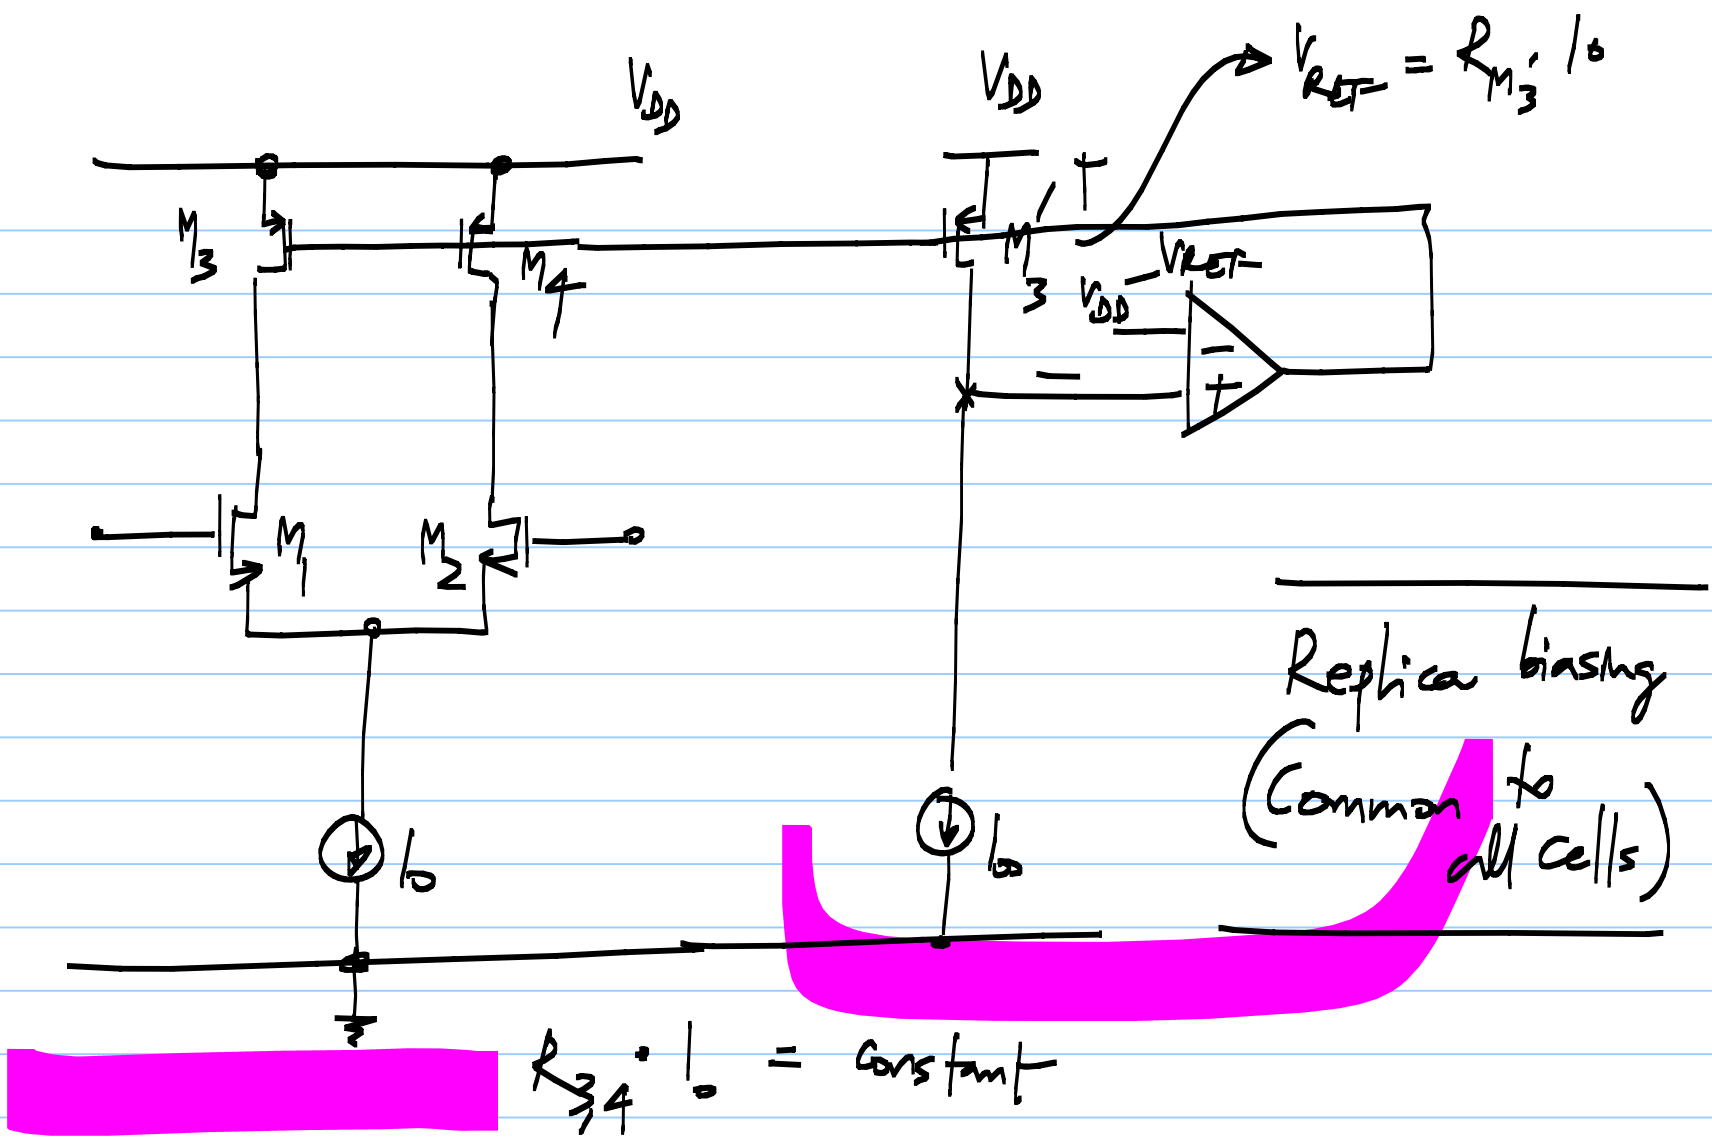 V_DD
V_DD
V_RET = R_M3' · I_0
M_3
M_4
M_3'
+
V_DD - V_RET
-
-
+
M_1
M_2
Replica biasing
(Common to
all cells)
I_0
I_0
R_3,4 · I_0 = constant